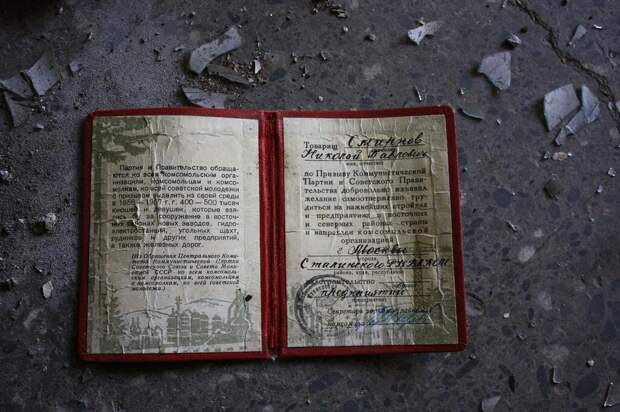 Партия и Правительство обраща-
ются ко всем комсомольским орга-
низациям, комсомольцам и комсо-
молкам, ко всей советской молодежи
с призывом выделить из своей среды
в 1956—1957 г.г. 400—500 тысяч
юношей и девушек, которые взя-
лись бы за сооружение в восточ-
ных районах новых заводов, гидро-
электростанций, угольных шахт,
рудников и других предприятий,
а также железных дорог.
(Из Обращения Центрального Коми-
тета Коммунистической Партии
Советского Союза и Совета Мини-
стров СССР ко всем комсомоль-
ским организациям, комсомольцам
и комсомолкам, ко всей советской
молодежи.)
Товарищ Смирнов
Николай Павлович
имя, отчество
по Призыву Коммунистической
Партии и Советского Прави-
тельства добровольно изъявил
желание самоотверженно тру-
диться на важнейших стройках
и предприятиях в восточных
и северных районах страны
и направлен комсомольской
организацией
г. Москвы
города
Сталинского
района, края, республики
на строительство
предприятий
Секретарь